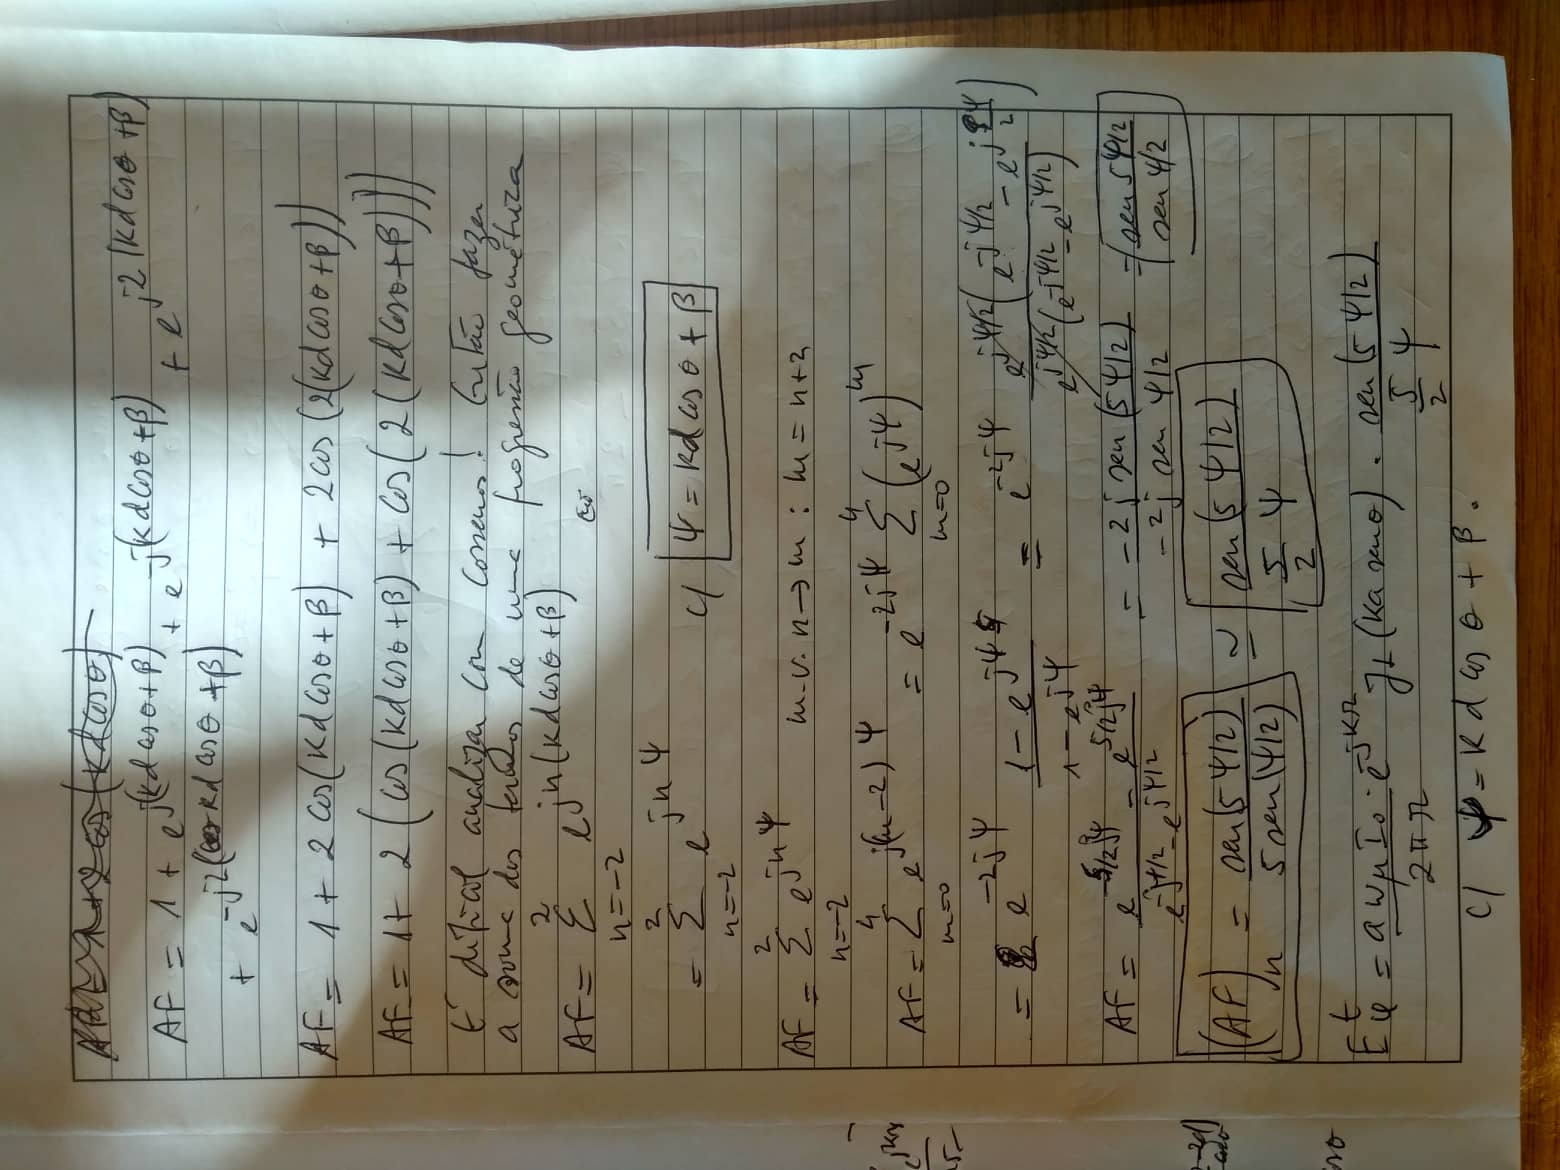 AF = 1 + e^{j(kd cosθ+β)} + e^{-j(kd cosθ+β)} + e^{j2(kd cosθ+β)}
+ e^{-j2(kd cosθ+β)}
AF = 1 + 2 cos(kd cosθ+β) + 2 cos(2(kd cosθ+β))
AF = 1 + 2(cos(kd cosθ+β) + cos(2(kd cosθ+β)))
É difícil analizar com cossenos! Então fazer
a soma dos termos de uma progressão geométrica
AF = Σ_{n=-2}^{2} e^{jn(kd cosθ+β)}
= Σ_{n=-2}^{2} e^{jnψ} c/ ψ = kd cosθ + β
AF = Σ_{n=-2}^{2} e^{jnψ} m.v. n→m : m = n+2
AF = Σ_{m=0}^{4} e^{j(m-2)ψ} = e^{-2jψ} Σ_{m=0}^{4} (e^{jψ})^m
= e^{-2jψ} (1 - e^{jψ5})/(1 - e^{jψ}) = e^{-2jψ} e^{jψ/2}(e^{-jψ/2} - e^{j9ψ/2})/e^{jψ/2}(e^{-jψ/2} - e^{jψ/2})
AF = (e^{-5/2jψ} - e^{5/2jψ})/(e^{-jψ/2} - e^{jψ/2}) = -2j sen(5ψ/2)/-2j sen ψ/2 = sen 5ψ/2 / sen ψ/2
(AF)_n = sen(5ψ/2)/5 sen(ψ/2) ≃ sen(5ψ/2)/(5/2 ψ)
E_φ^t = a w μ I_0 e^{-jkr}/2πr J_1(ka senθ) . sen(5ψ/2)/(5/2 ψ)
c/ ψ = kd cosθ + β.